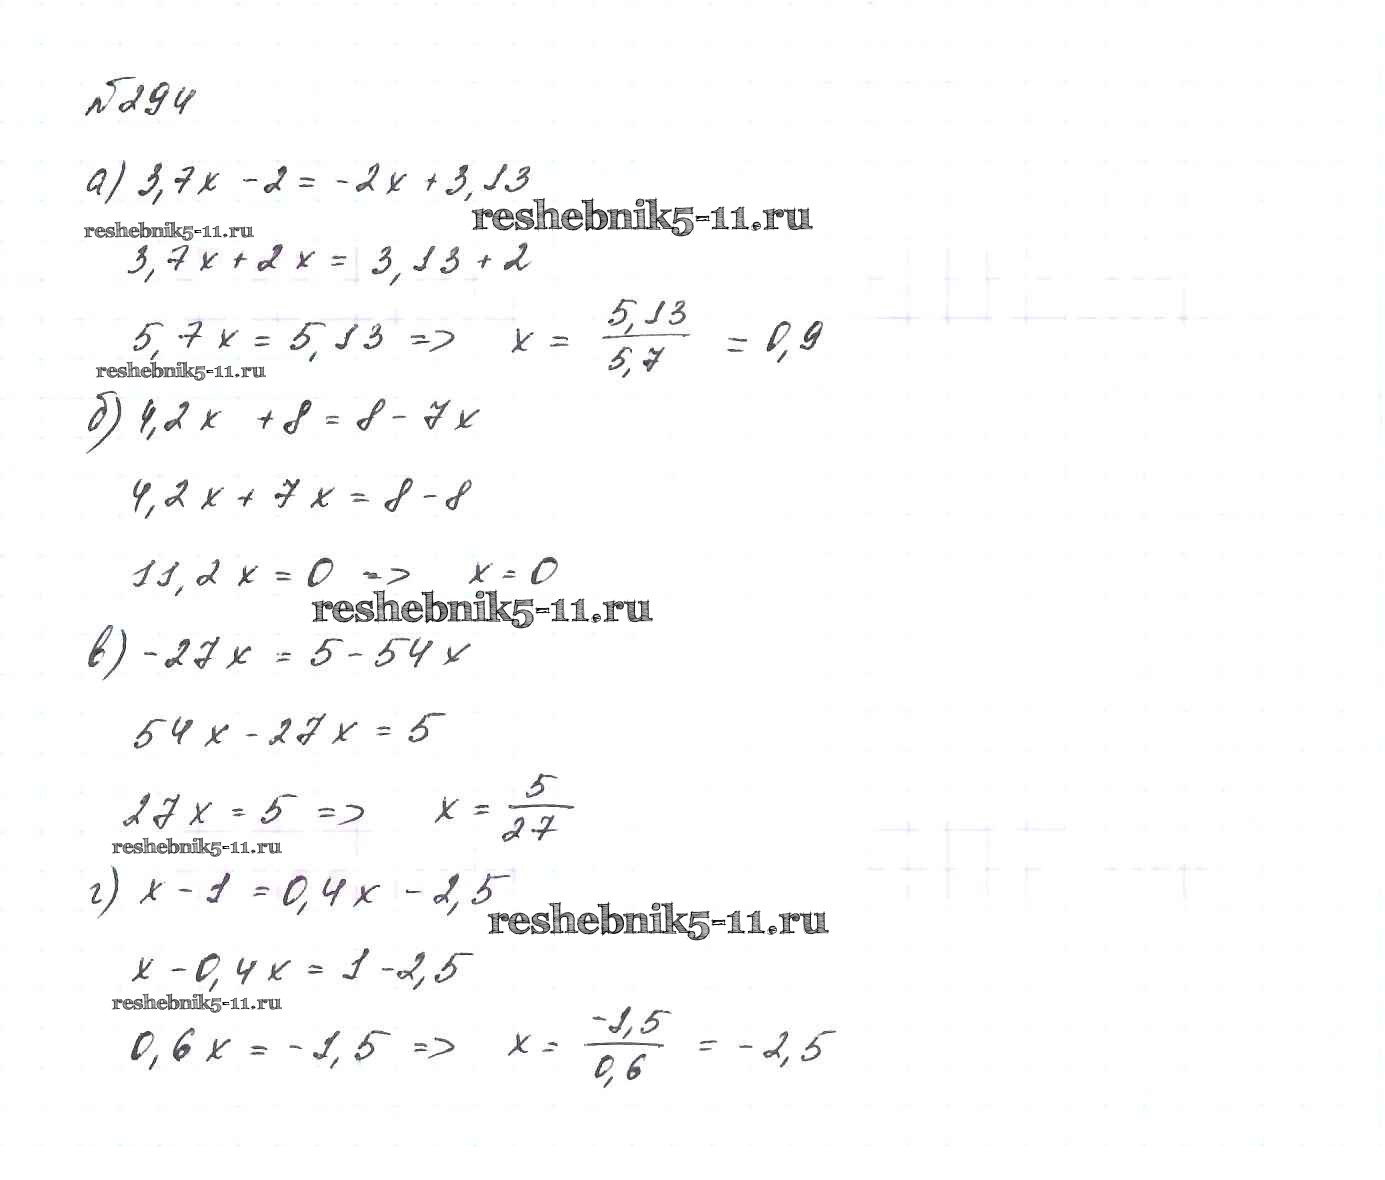 №294
а) 3,7x - 2 = -2x + 3,13
reshebnik5-11.ru
reshebnik5-11.ru
3,7x + 2x = 3,13 + 2
5,7x = 5,13 => x = 5,13/5,7 = 0,9
reshebnik5-11.ru
б) 4,2x + 8 = 8 - 7x
4,2x + 7x = 8 - 8
11,2x = 0 => x = 0
reshebnik5-11.ru
в) -27x = 5 - 54x
54x - 27x = 5
27x = 5 => x = 5/27
reshebnik5-11.ru
г) x - 1 = 0,4x - 2,5
reshebnik5-11.ru
x - 0,4x = 1 - 2,5
reshebnik5-11.ru
0,6x = -1,5 => x = -1,5/0,6 = -2,5